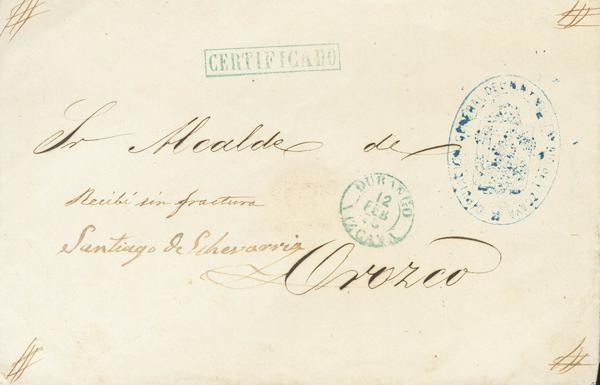 CERTIFICADO
Sr Alcalde de
Recibí sin fractura
Santiago de Echevarria
Orozco
DURANGO
12
FEB
VIZCAYA